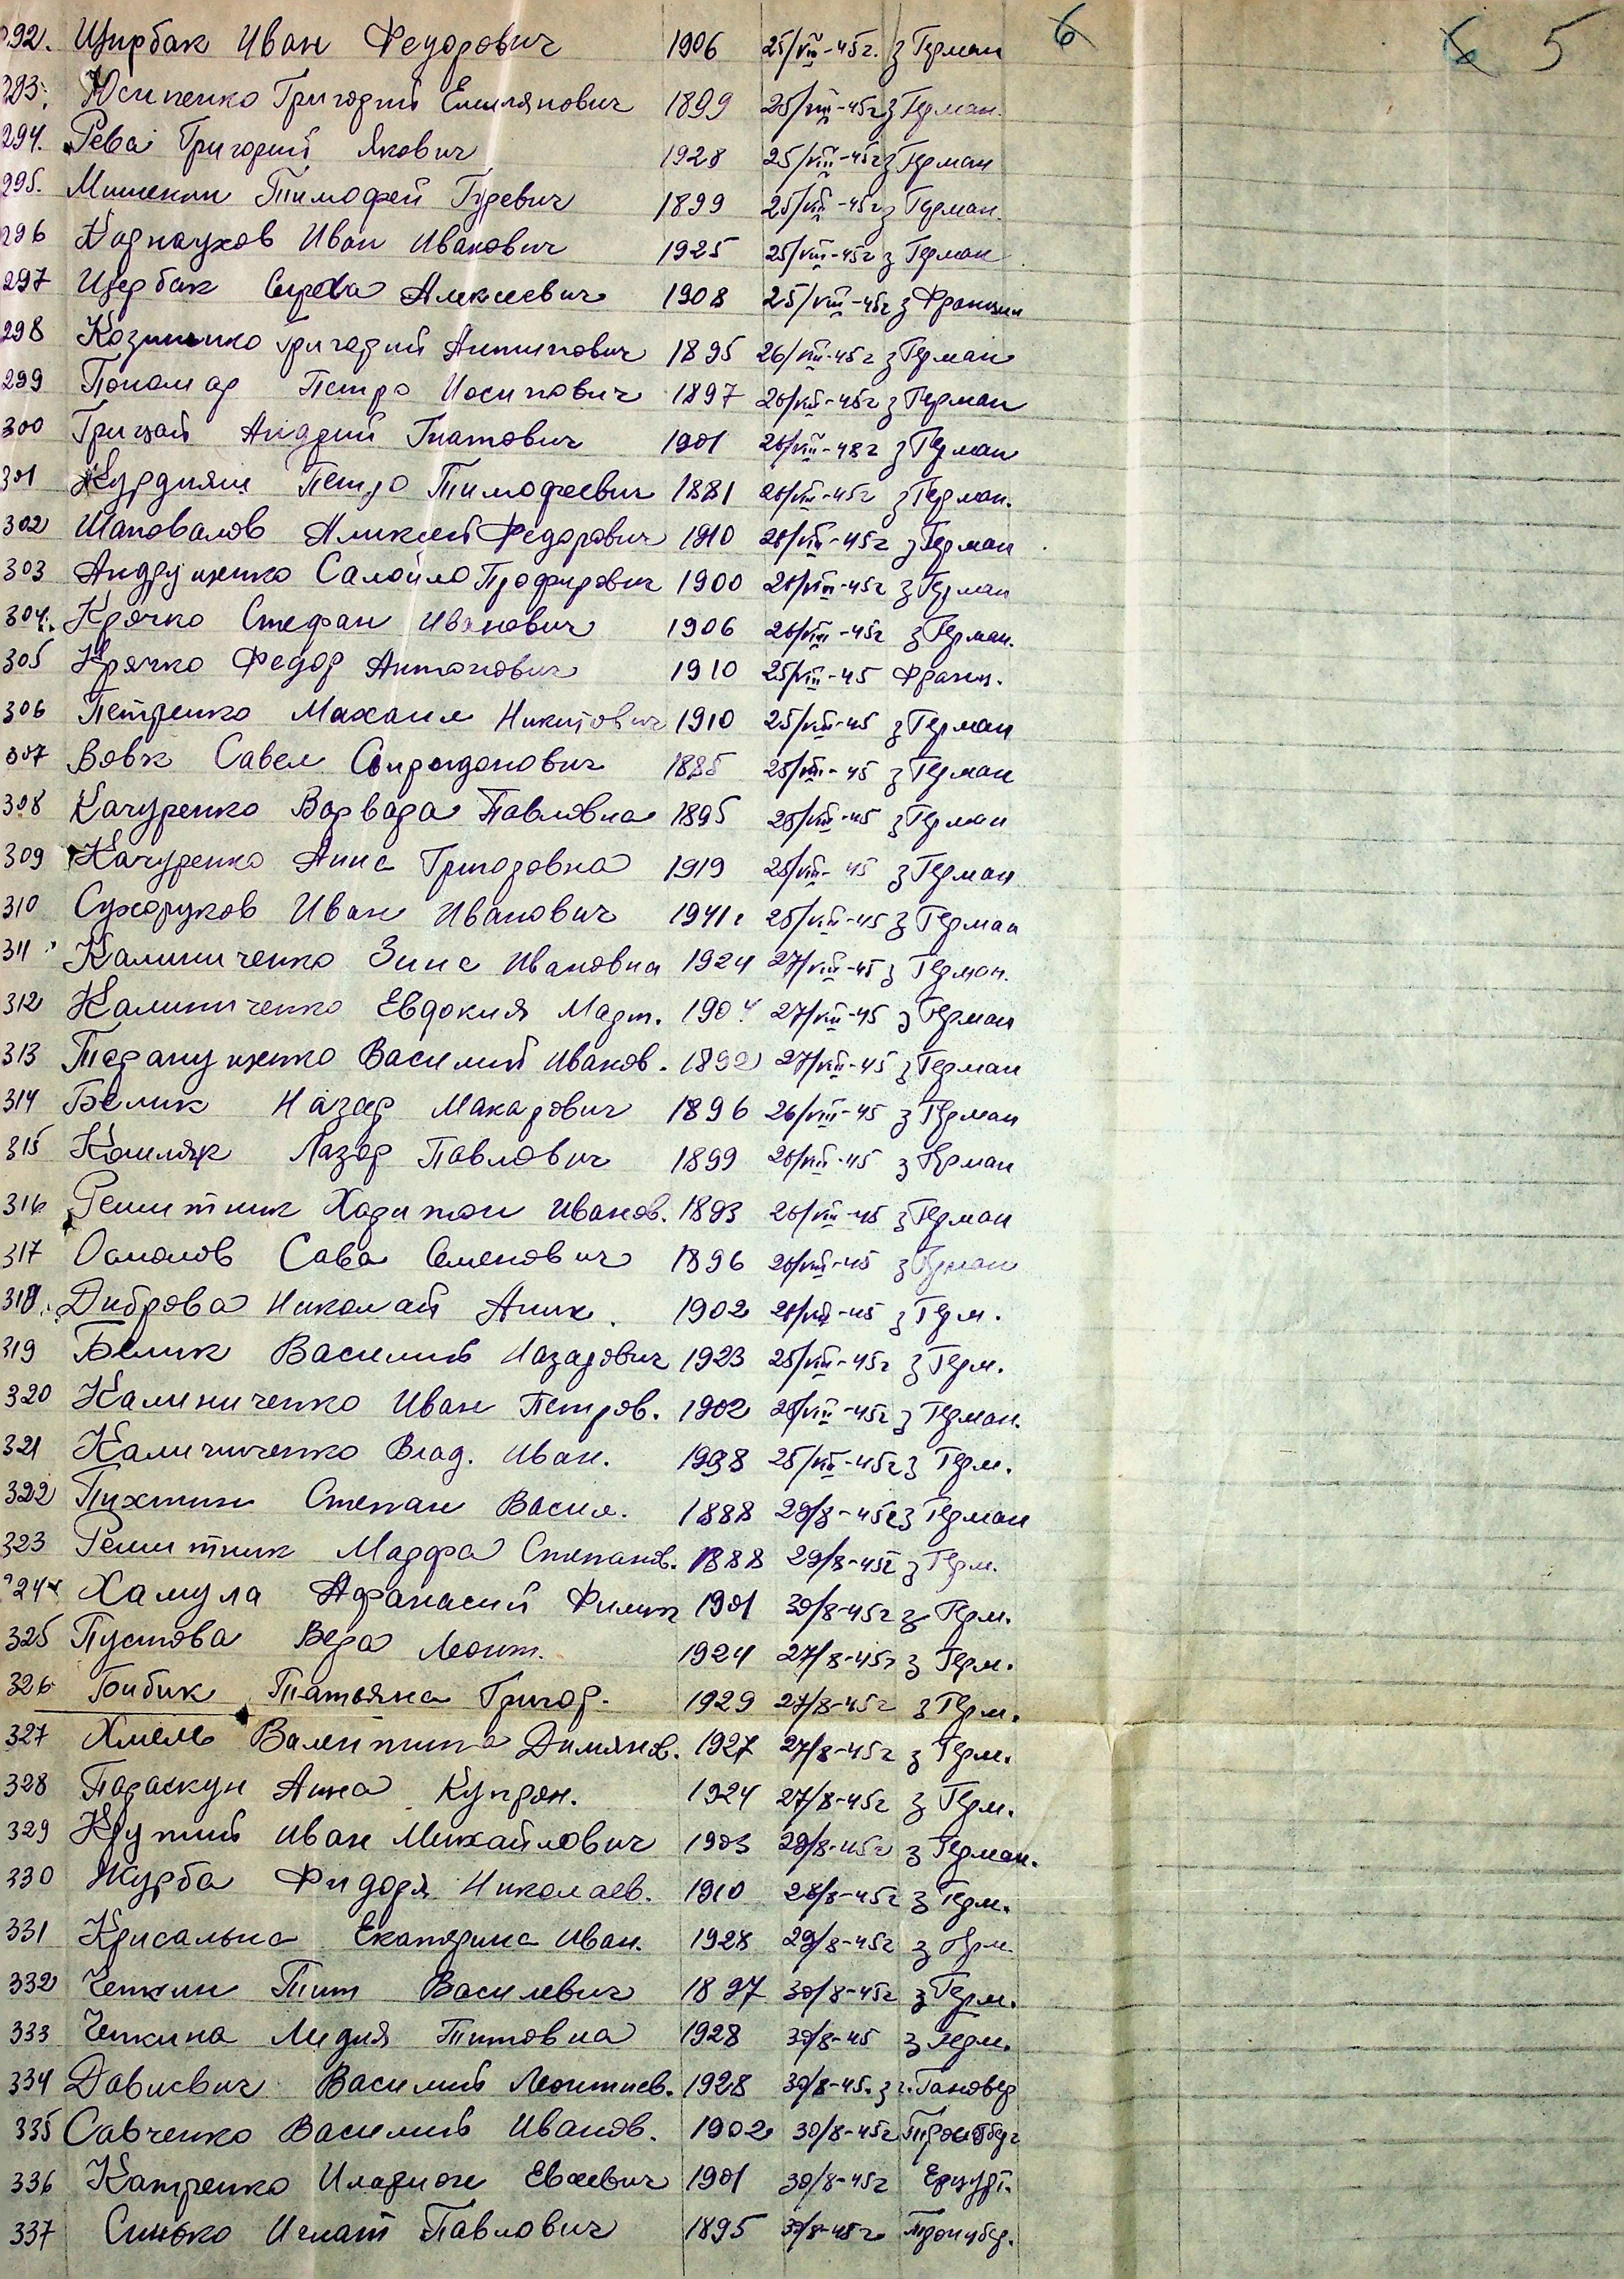 292. Щирбак Иван Федорович 1906 25/VIII-45г. з Герман 6 6 5
293. Юсипенко Григорий Емилянович 1899 25/VIII-45г з Герман.
294. Рева Григорий Якович 1928 25/VIII-45г з Герман
295. Тимофей Гуревич 1899 25/VIII-45г з Герман.
296 Карнаухов Иван Иванович 1925 25/VIII-45г з Герман
297 Щербак Алексеевич 1908 25/VIII-45г з Франции
298 Григорий Антипович 1895 26/VIII-45г з Герман
299 Пономар Петро Иосипович 1897 26/VIII-45г з Герман
300 Грицай Андрий Гнатович 1901 26/VIII-48г з Герман
301 Петро Тимофеевич 1881 26/VIII-45г з Герман.
302 Шаповалов Аликсей Федорович 1910 26/VIII-45г з Герман
303 Андрущенко Самойло 1900 26/VIII-45г з Герман
304. Крячко Стефан Иванович 1906 26/VIII-45г з Герман.
305 Крячко Федор Антонович 1910 25/VIII-45 Франц.
306 Петренко Махаил Никитович 1910 25/VIII-45 з Герман
307 Вовк Савел Спиридонович 1885 25/VIII-45 з Герман
308 Качуренко Варвара Павловна 1895 25/VIII-45 з Герман
309 Качуренко Анна Григоровна 1919 25/VIII-45 з Герман
310 Сухоруков Иван Иванович 1941г 25/VIII-45 з Герман
311 Калиниченко Зина Ивановна 1924 27/VIII-45 з Герман.
312 Калиниченко Евдокия Март. 1904 27/VIII-45 з Герман
313 Таранущенко Василий Иванов. 27/VIII-45 з Герман
314 Белик Назар Макарович 1896 26/VIII-45 з Герман
315 Лазар Павлович 1899 26/VIII-45 з Герман
316 Решитник Харитон Иванов. 1893 26/VIII-45 з Герман
317 Осмолов Сава Семенович 1896 26/VIII-45 з Герман
318. Диброва Николай Аник. 1902 26/VIII-45 з Герм.
319 Белик Василий Назарович 1923 25/VIII-45г з Герм.
320 Калиниченко Иван Петров. 1902 25/VIII-45г з Герман.
321 Калиниченко Влад. Иван. 1938 25/VIII-45г з Герм.
322 Пихтин Степан Васил. 1888 29/8-45г з Герман
323 Решитник Марфа Степанов. 1888 29/8-45г з Герм.
324 Хамула Афанасий Филип 1901 30/8-45г з Герм.
325 Пустова Вера Леонт. 1924 27/8-45г з Герм.
326 Бибик Татьяна Григор. 1929 27/8-45г з Герм.
327 Хмель Валентина Димянов. 1927 27/8-45г з Герм.
328 Параскун Анна Купрян. 1924 27/8-45г з Герм.
329 Крупий Иван Михайлович 1903 29/8-45г з Герман.
330 Журба Фидоря Николаев. 1910 28/8-45г з Герм.
331 Крисальна Екатерина Иван. 1928 29/8-45г з Герм.
332 Чепкин Тит Василевич 1897 30/8-45г з Герм.
333 Чепкина Лидия Титовна 1928 30/8-45 з Герм.
334 Давиевич Василий Леонтиев. 1928 30/8-45. з г. Гановер
335 Савченко Василий Иванов. 1902 30/8-45г
336 Катренко Иларион Евсеевич 1901 30/8-45г
337 Синько Игнат Павлович 1895 30/8-45г